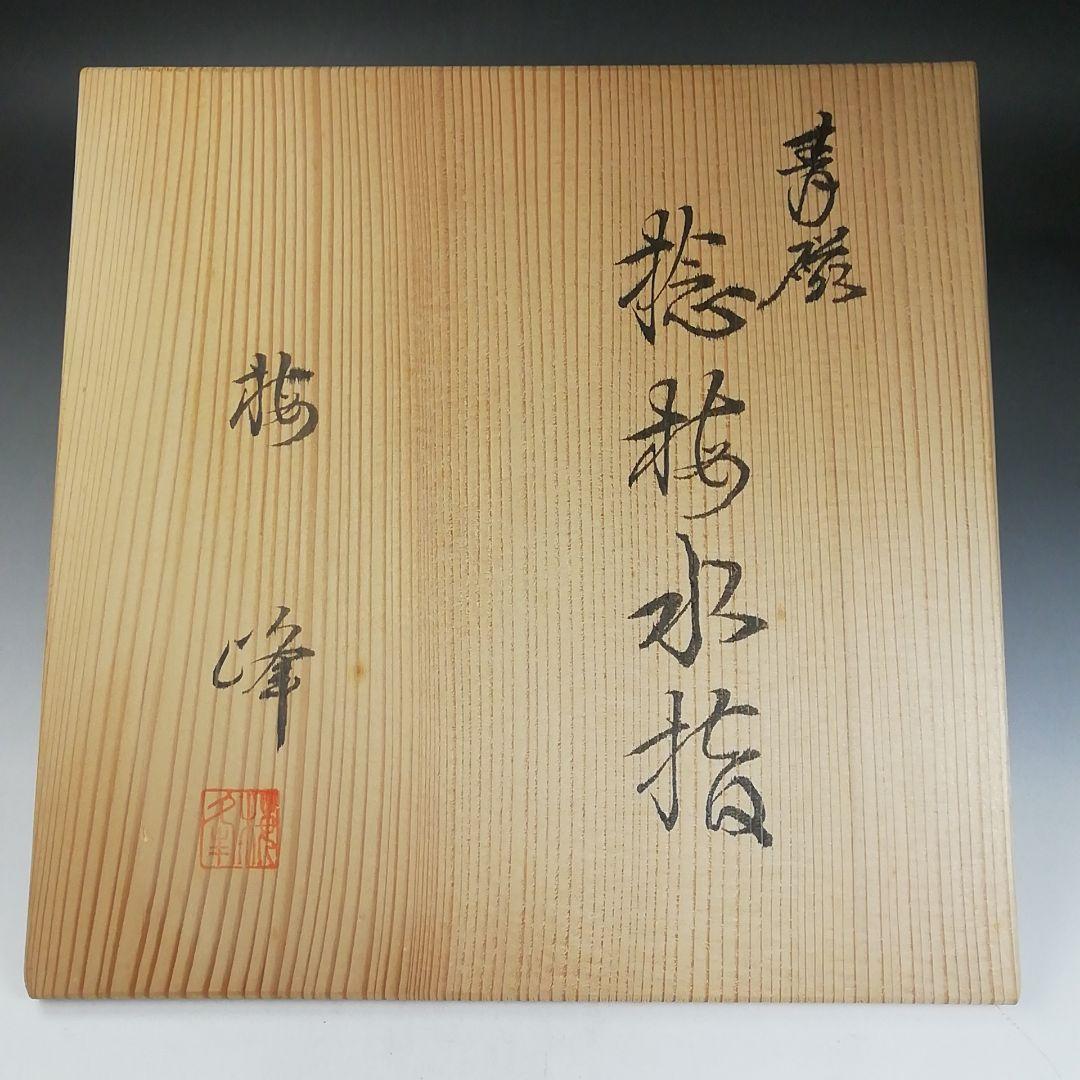 青磁
捻梅水指
梅峰